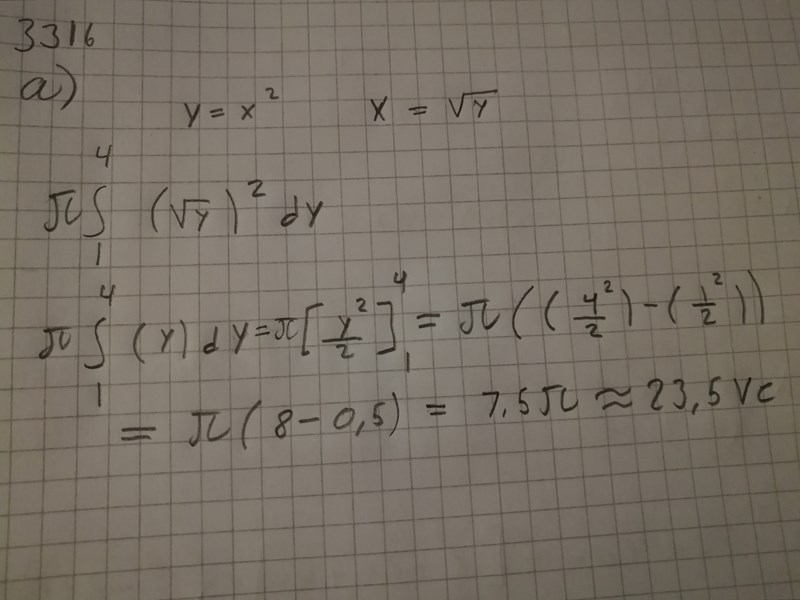 3316
a)
y = x² x = √y
π∫₁⁴ (√y)² dy
π∫₁⁴ (y) dy = π[y²/2]₁⁴ = π((4²/2) - (1²/2))
= π(8 - 0,5) = 7,5π ≈ 23,5 ve